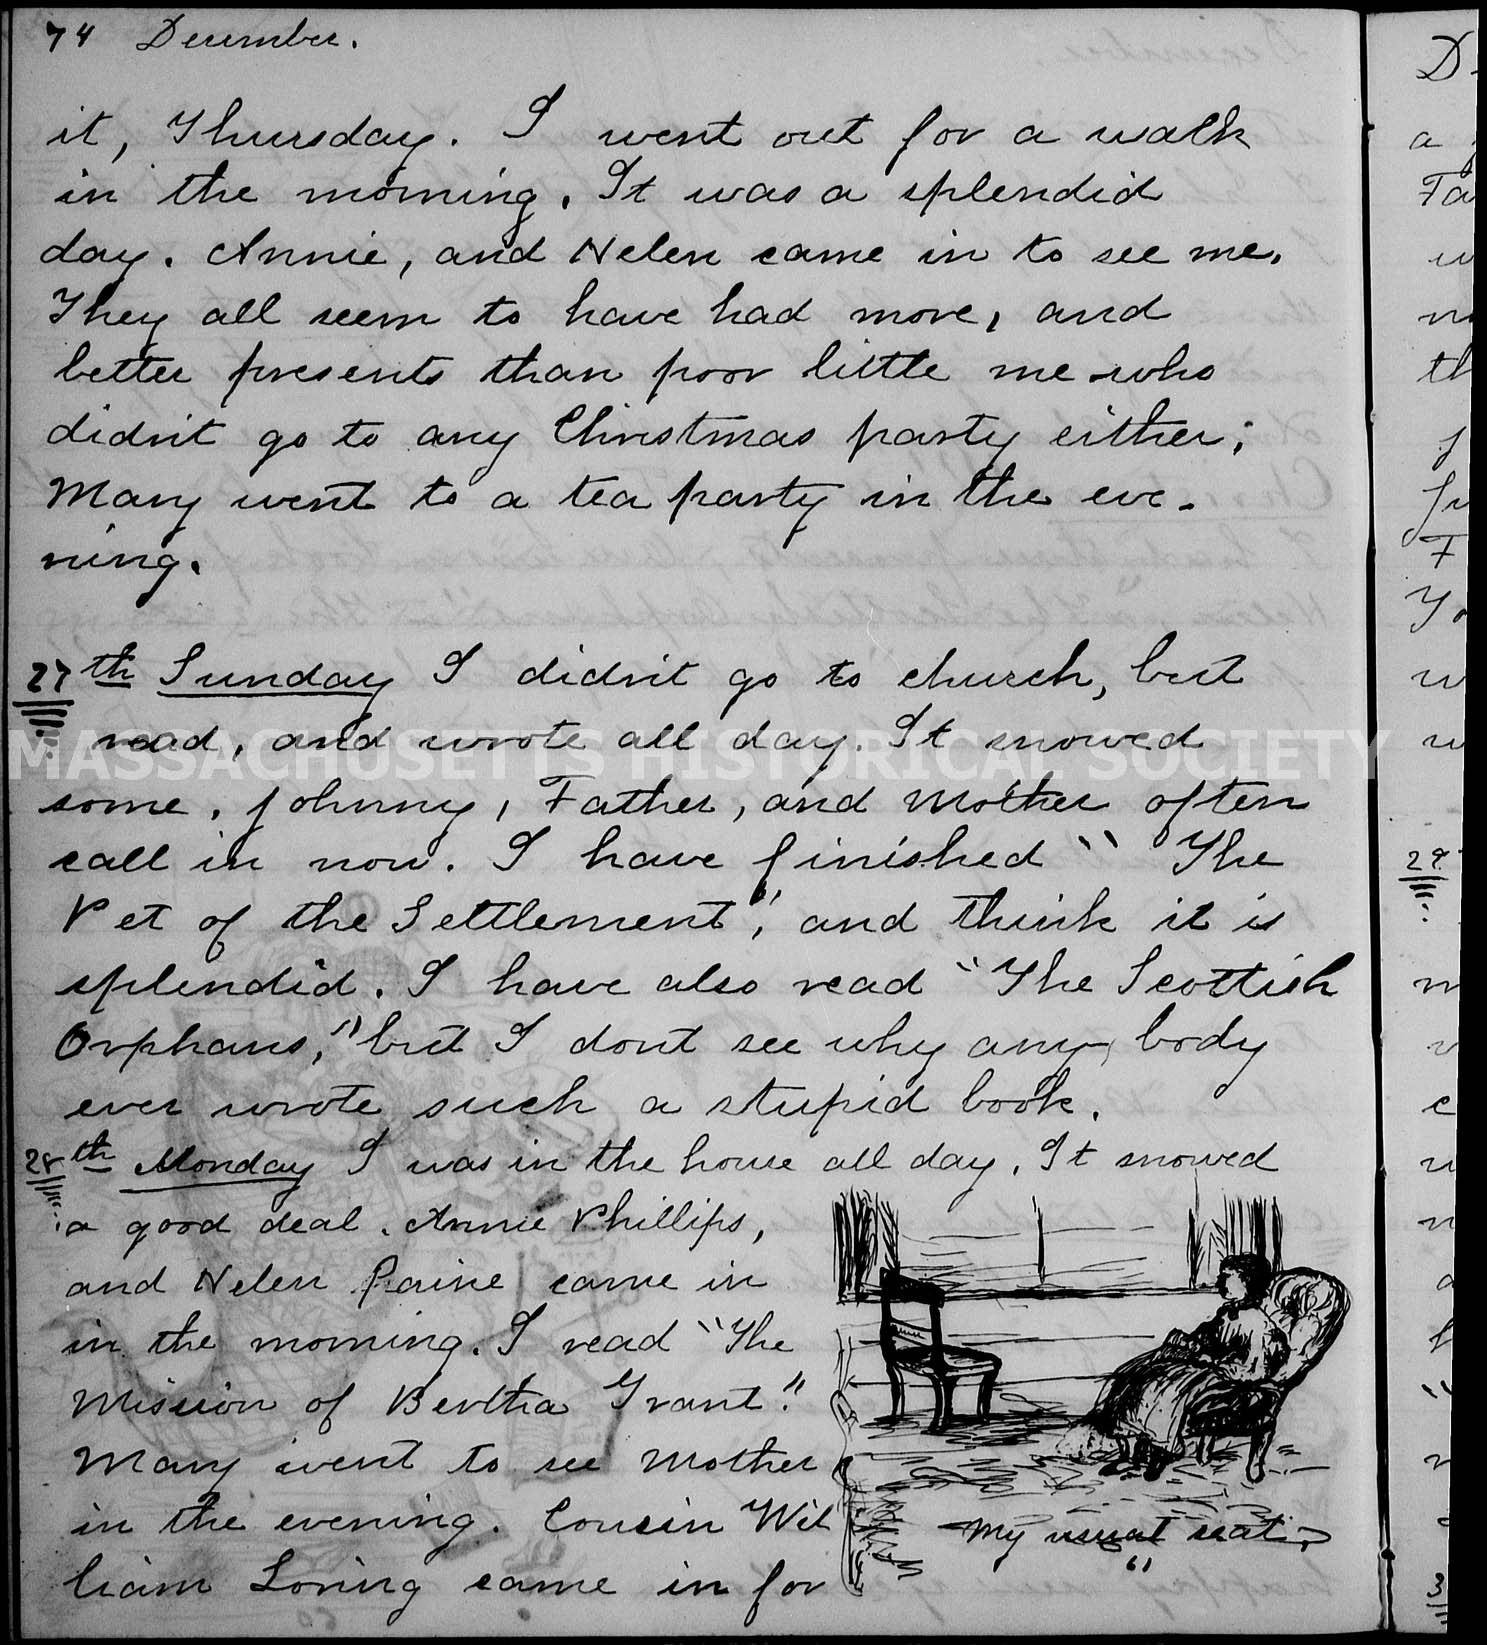 74 December.
it, Thursday. I went out for a walk
in the morning. It was a splendid
day. Annie, and Helen came in to see me.
They all seem to have had more, and
better presents than poor little me who
didn't go to any Christmas party either;
Mary went to a tea party in the eve-
ning.
27th Sunday I didn't go to church, but
read, and wrote all day. It snowed
MASSACHUSETTS HISTORICAL SOCIETY
some. Johnny, Father, and Mother often
call in now. I have finished "The
Pet of the Settlement", and think it is
splendid. I have also read "The Scottish
Orphans," but I dont see why any body
ever wrote such a stupid book.
28th Monday I was in the house all day. It snowed
a good deal. Annie Phillips,
and Helen Paine came in
in the morning. I read "The
Mission of Bertha Grant."
Mary went to see Mother
in the evening. Cousin Wil
liam Loring came in for
My usual seat.